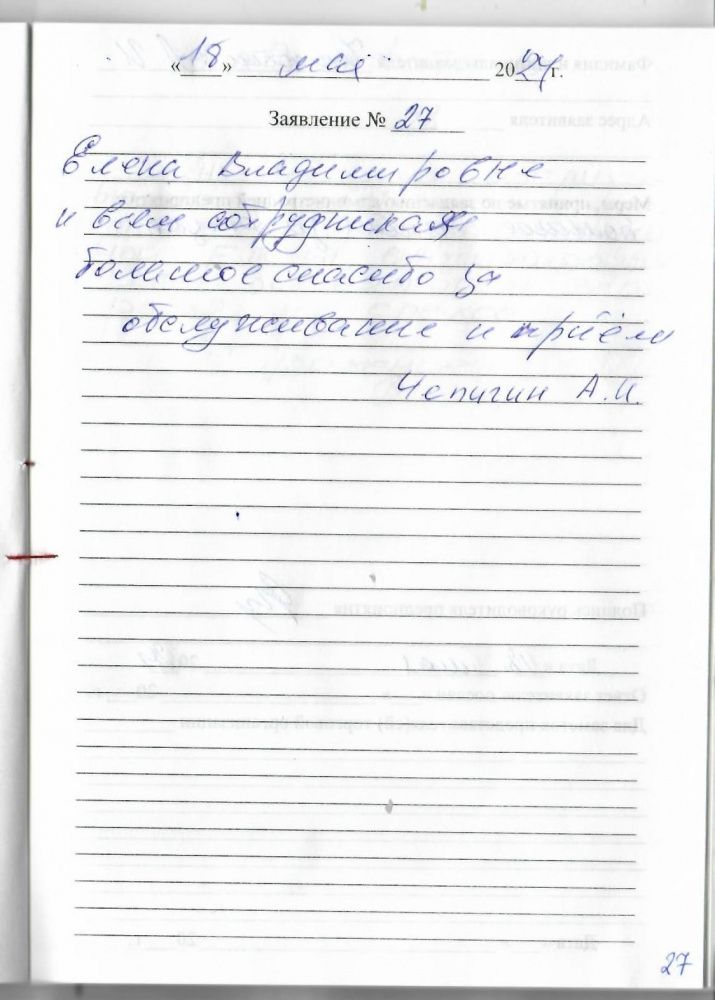 «18» мая 2024г.
Заявление № 27
Елена Владимировне
и всем сотрудникам
большое спасибо за
обслуживание и приём
Чепигин А.И.
27